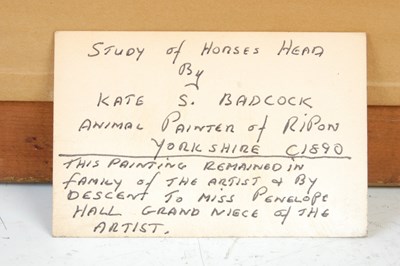 STUDY of HORSES HEAD
By
KATE S. BADCOCK
ANIMAL PAINTER of RIPON
YORKSHIRE C1890
THIS PAINTING REMAINED IN
family of THE ARTIST & BY
DESCENT TO MISS PENELOPE
HALL GRAND NIECE of THE
ARTIST.